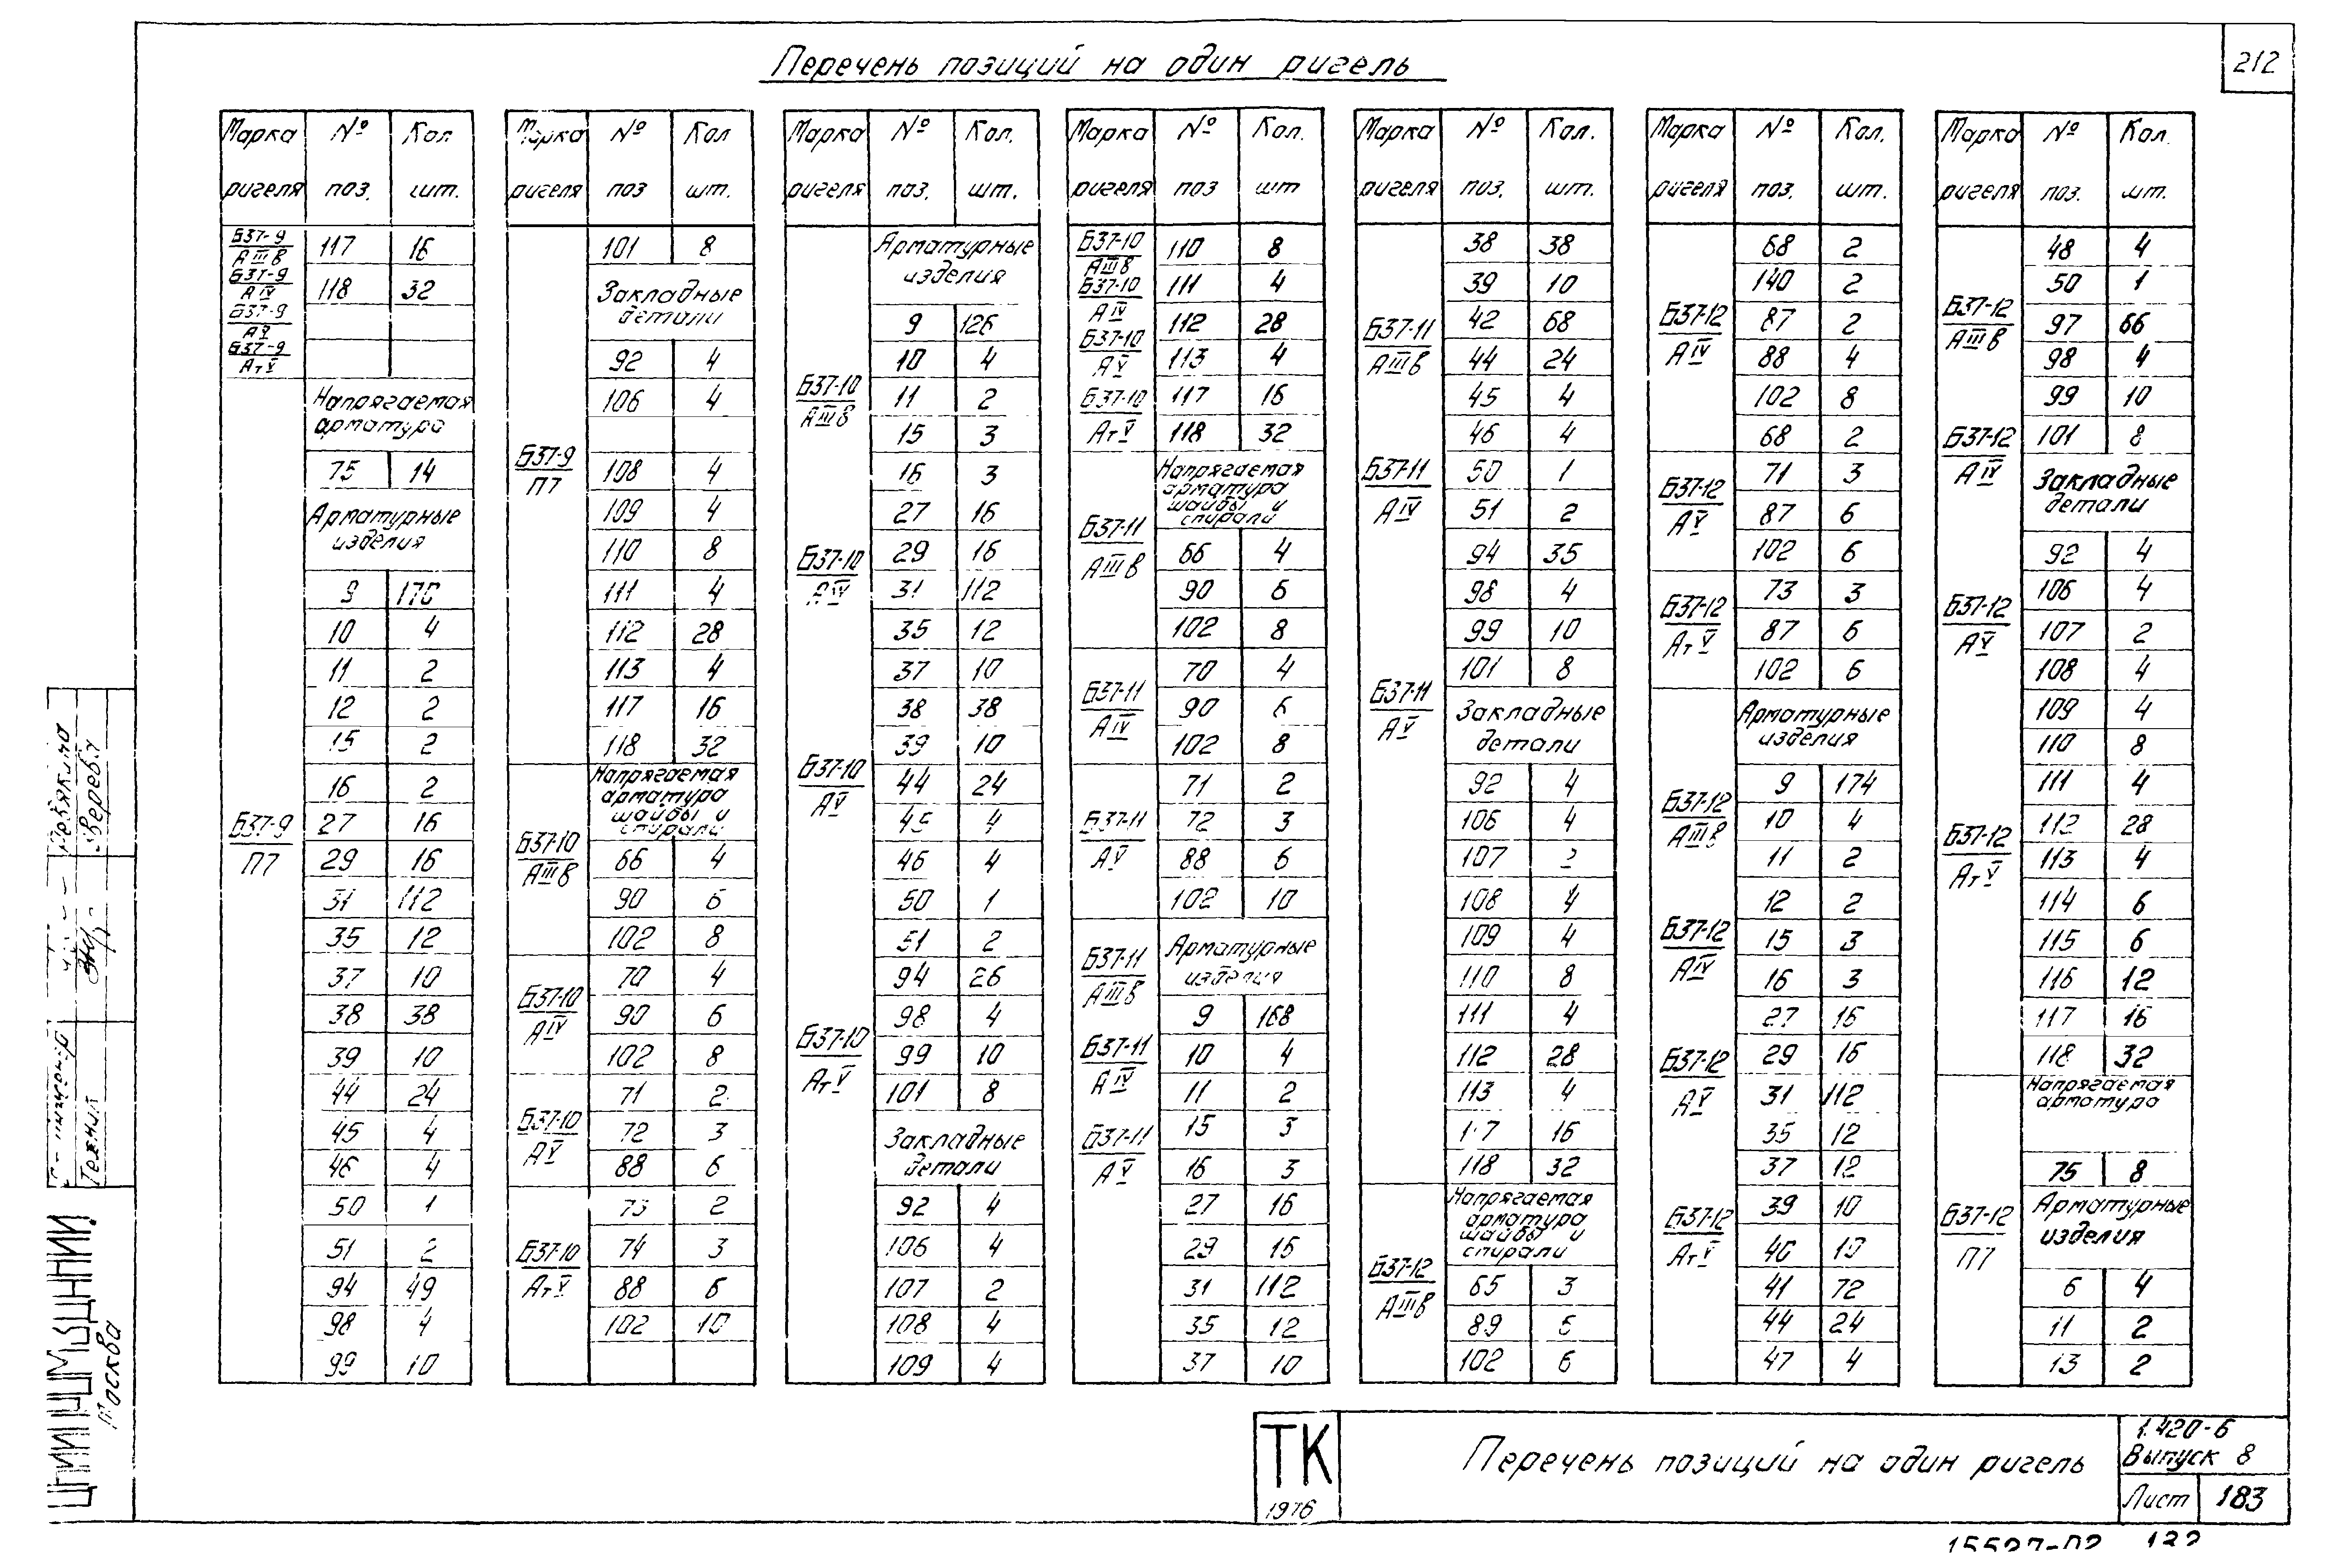 Перечень позиций на один ригель
212
Марка ригеля № поз. Кол шт.
Б37-9 АIIIв
Б37-9 АIV
Б37-9 АV
Б37-9 АтV
117 16
118 32
Б37-9 П7
Напрягаемая
арматура
75 14
Арматурные
изделия
9 170
10 4
11 2
12 2
15 2
16 2
27 16
29 16
31 112
35 12
37 10
38 38
39 10
44 24
45 4
46 4
50 1
51 2
94 49
98 4
99 10
Марка ригеля № поз Кол шт.
Б37-9 П7
101 8
Закладные
детали
92 4
106 4
108 4
109 4
110 8
111 4
112 28
113 4
117 16
118 32
Б37-10 АIIIв
Напрягаемая
арматура
шайбы и
спирали
66 4
90 6
102 8
Б37-10 АIV
70 4
90 6
102 8
Б37-10 АV
71 2
72 3
88 6
Б37-10 АтV
73 2
74 3
88 6
102 10
Марка ригеля № поз. Кол. шт.
Б37-10 АIIIв
Б37-10 АIV
Б37-10 АV
Б37-10 АтV
Арматурные
изделия
9 126
10 4
11 2
15 3
16 3
27 16
29 16
31 112
35 12
37 10
38 38
39 10
44 24
45 4
46 4
50 1
51 2
94 26
98 4
99 10
101 8
Закладные
детали
92 4
106 4
107 2
108 4
109 4
Марка ригеля № поз Кол. шт
Б37-10 АIIIв
Б37-10 АIV
Б37-10 АV
Б37-10 АтV
110 8
111 4
112 28
113 4
117 16
118 32
Б37-11 АIIIв
Напрягаемая
арматура
шайбы и
спирали
66 4
90 6
102 8
Б37-11 АIV
70 4
90 6
102 8
Б37-11 АV
71 2
72 3
88 6
102 10
Б37-11 АIIIв
Б37-11 АIV
Б37-11 АV
Арматурные
изделия
9 168
10 4
11 2
15 3
16 3
27 16
29 16
31 112
35 12
37 10
Марка ригеля № поз. Кол. шт.
Б37-11 АIIIв
Б37-11 АIV
Б37-11 АV
38 38
39 10
42 68
44 24
45 4
46 4
50 1
51 2
94 35
98 4
99 10
101 8
Закладные
детали
92 4
106 4
107 2
108 4
109 4
110 8
111 4
112 28
113 4
117 16
118 32
Б37-12 АIIIв
Напрягаемая
арматура
шайбы и
спирали
65 3
89 6
102 6
Марка ригеля № поз. Кол. шт.
Б37-12 АIV
68 2
140 2
87 2
88 4
102 8
68 2
Б37-12 АV
71 3
87 6
102 6
Б37-12 АтV
73 3
87 6
102 6
Б37-12 АIIIв
Б37-12 АIV
Б37-12 АV
Б37-12 АтV
Арматурные
изделия
9 174
10 4
11 2
12 2
15 3
16 3
27 16
29 16
31 112
35 12
37 12
39 10
40 10
41 72
44 24
47 4
Марка ригеля № поз. Кол. шт.
Б37-12 АIIIв
Б37-12 АIV
Б37-12 АV
Б37-12 АтV
48 4
50 1
97 66
98 4
99 10
101 8
Закладные
детали
92 4
106 4
107 2
108 4
109 4
110 8
111 4
112 28
113 4
114 6
115 6
116 12
117 16
118 32
Б37-12 П7
Напрягаемая
арматура
75 8
Арматурные
изделия
6 4
11 2
13 2
ТК
1976
Перечень позиций на один ригель
1.420-6
Выпуск 8
Лист 183
15527-02 122
Техник
Москва